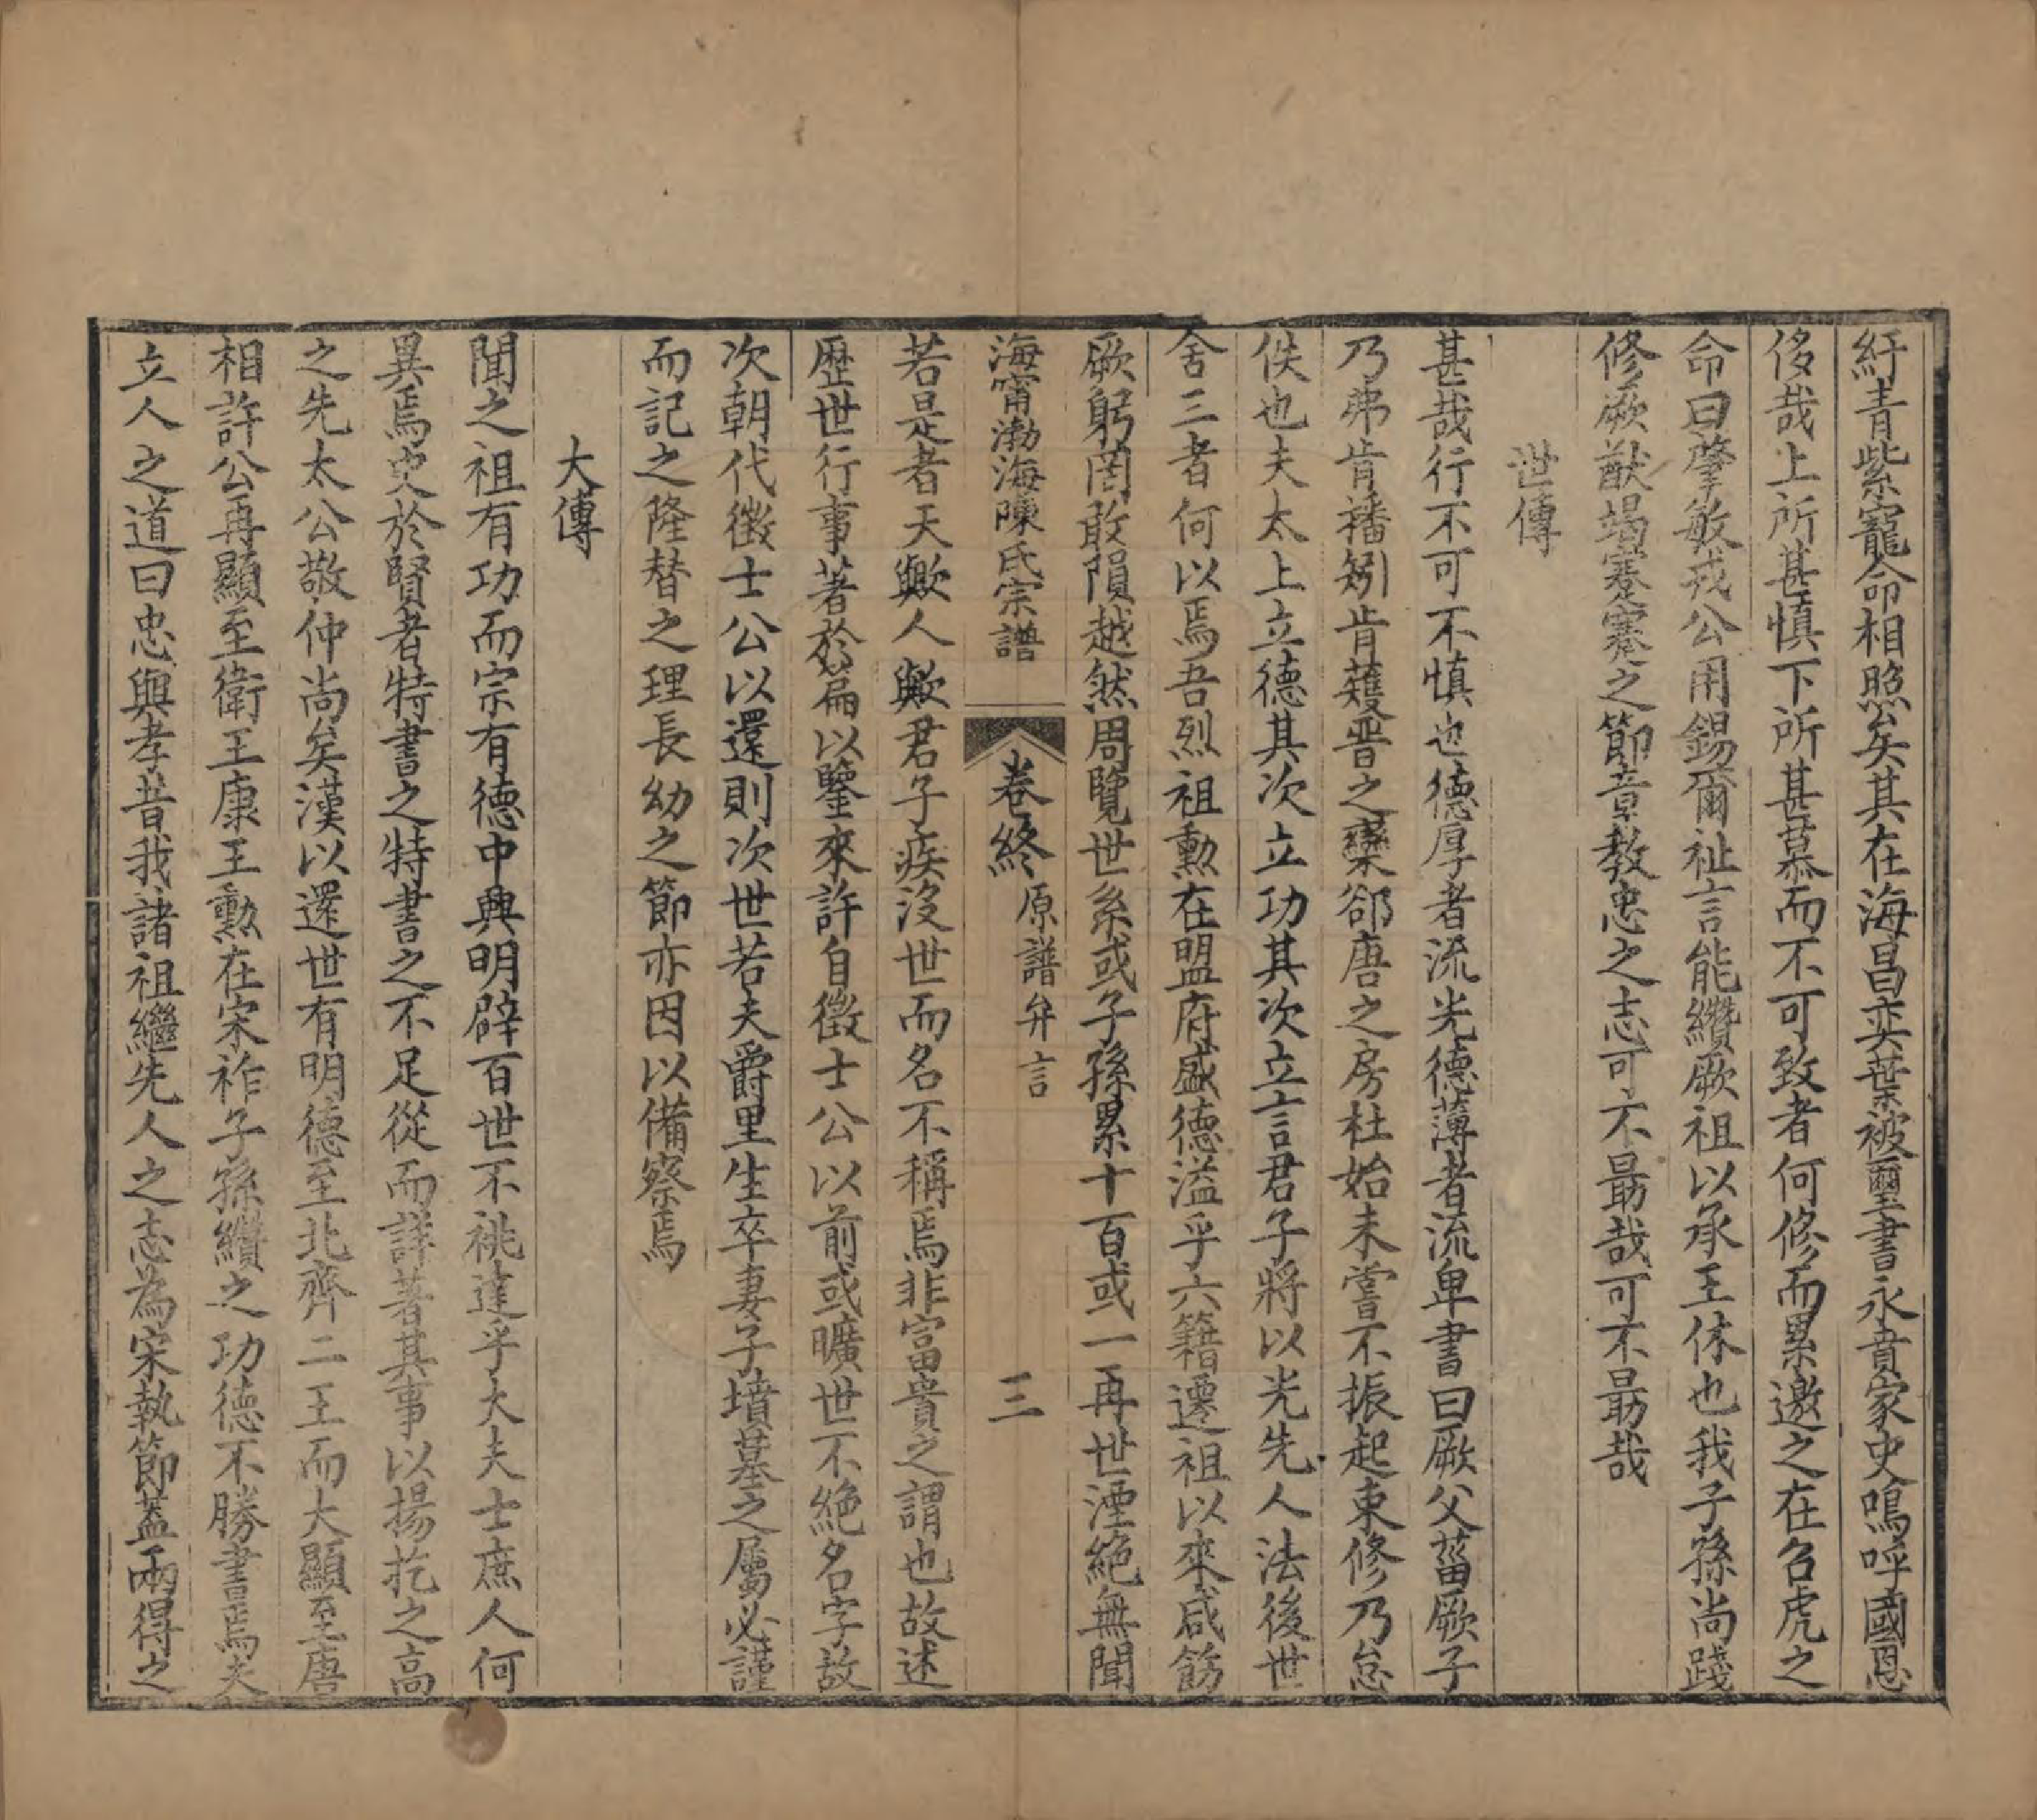 紆青紫寵命相照矣其在海昌奕葉被璽書永賁家史嗚呼國恩
侈哉上所甚慎下所甚慕而不可致者何修而累邀之在召虎之
命曰肇敏戎公用錫爾祉言能纘厥祖以承王休也我子孫尚踐
修厥猷竭蹇蹇之節章教忠之志可不最哉可不最哉
世傳
甚哉行不可不慎也德厚者流光德薄者流卑書曰厥父菑厥子
乃弗肯播矧肯穫晋之欒郤唐之房杜始未嘗不振起束修乃怠
佚也夫太上立德其次立功其次立言君子將以光先人法後世
舍三者何以焉吾烈祖勳在盟府盛德溢乎六籍遷祖以來咸飭
厥躬罔敢隕越然周覽世系或子孫累十百或一再世湮絶無聞
海甯渤海陳氏宗譜 卷終 原譜弁言 三
若是者天歟人歟君子疾沒世而名不稱焉非富貴之謂也故述
歷世行事著於篇以鑒來許自徵士公以前或曠世不絶名字故
次朝代徵士公以還則次世若夫爵里生卒妻子墳墓之屬必謹
而記之隆替之理長幼之節亦因以備察焉
大傳
聞之祖有功而宗有德中興明辟百世不祧達乎大夫士庶人何
異焉史於賢者特書之特書之不足從而詳著其事以揚扢之高
之先太公敬仲尚矣漢以還世有明德至北齊二王而大顯至唐
相許公再顯至衛王康王勳在宋祚子孫纘之功德不勝書焉夫
立人之道曰忠與孝昔我諸祖繼先人之志為宋執節蓋兩得之